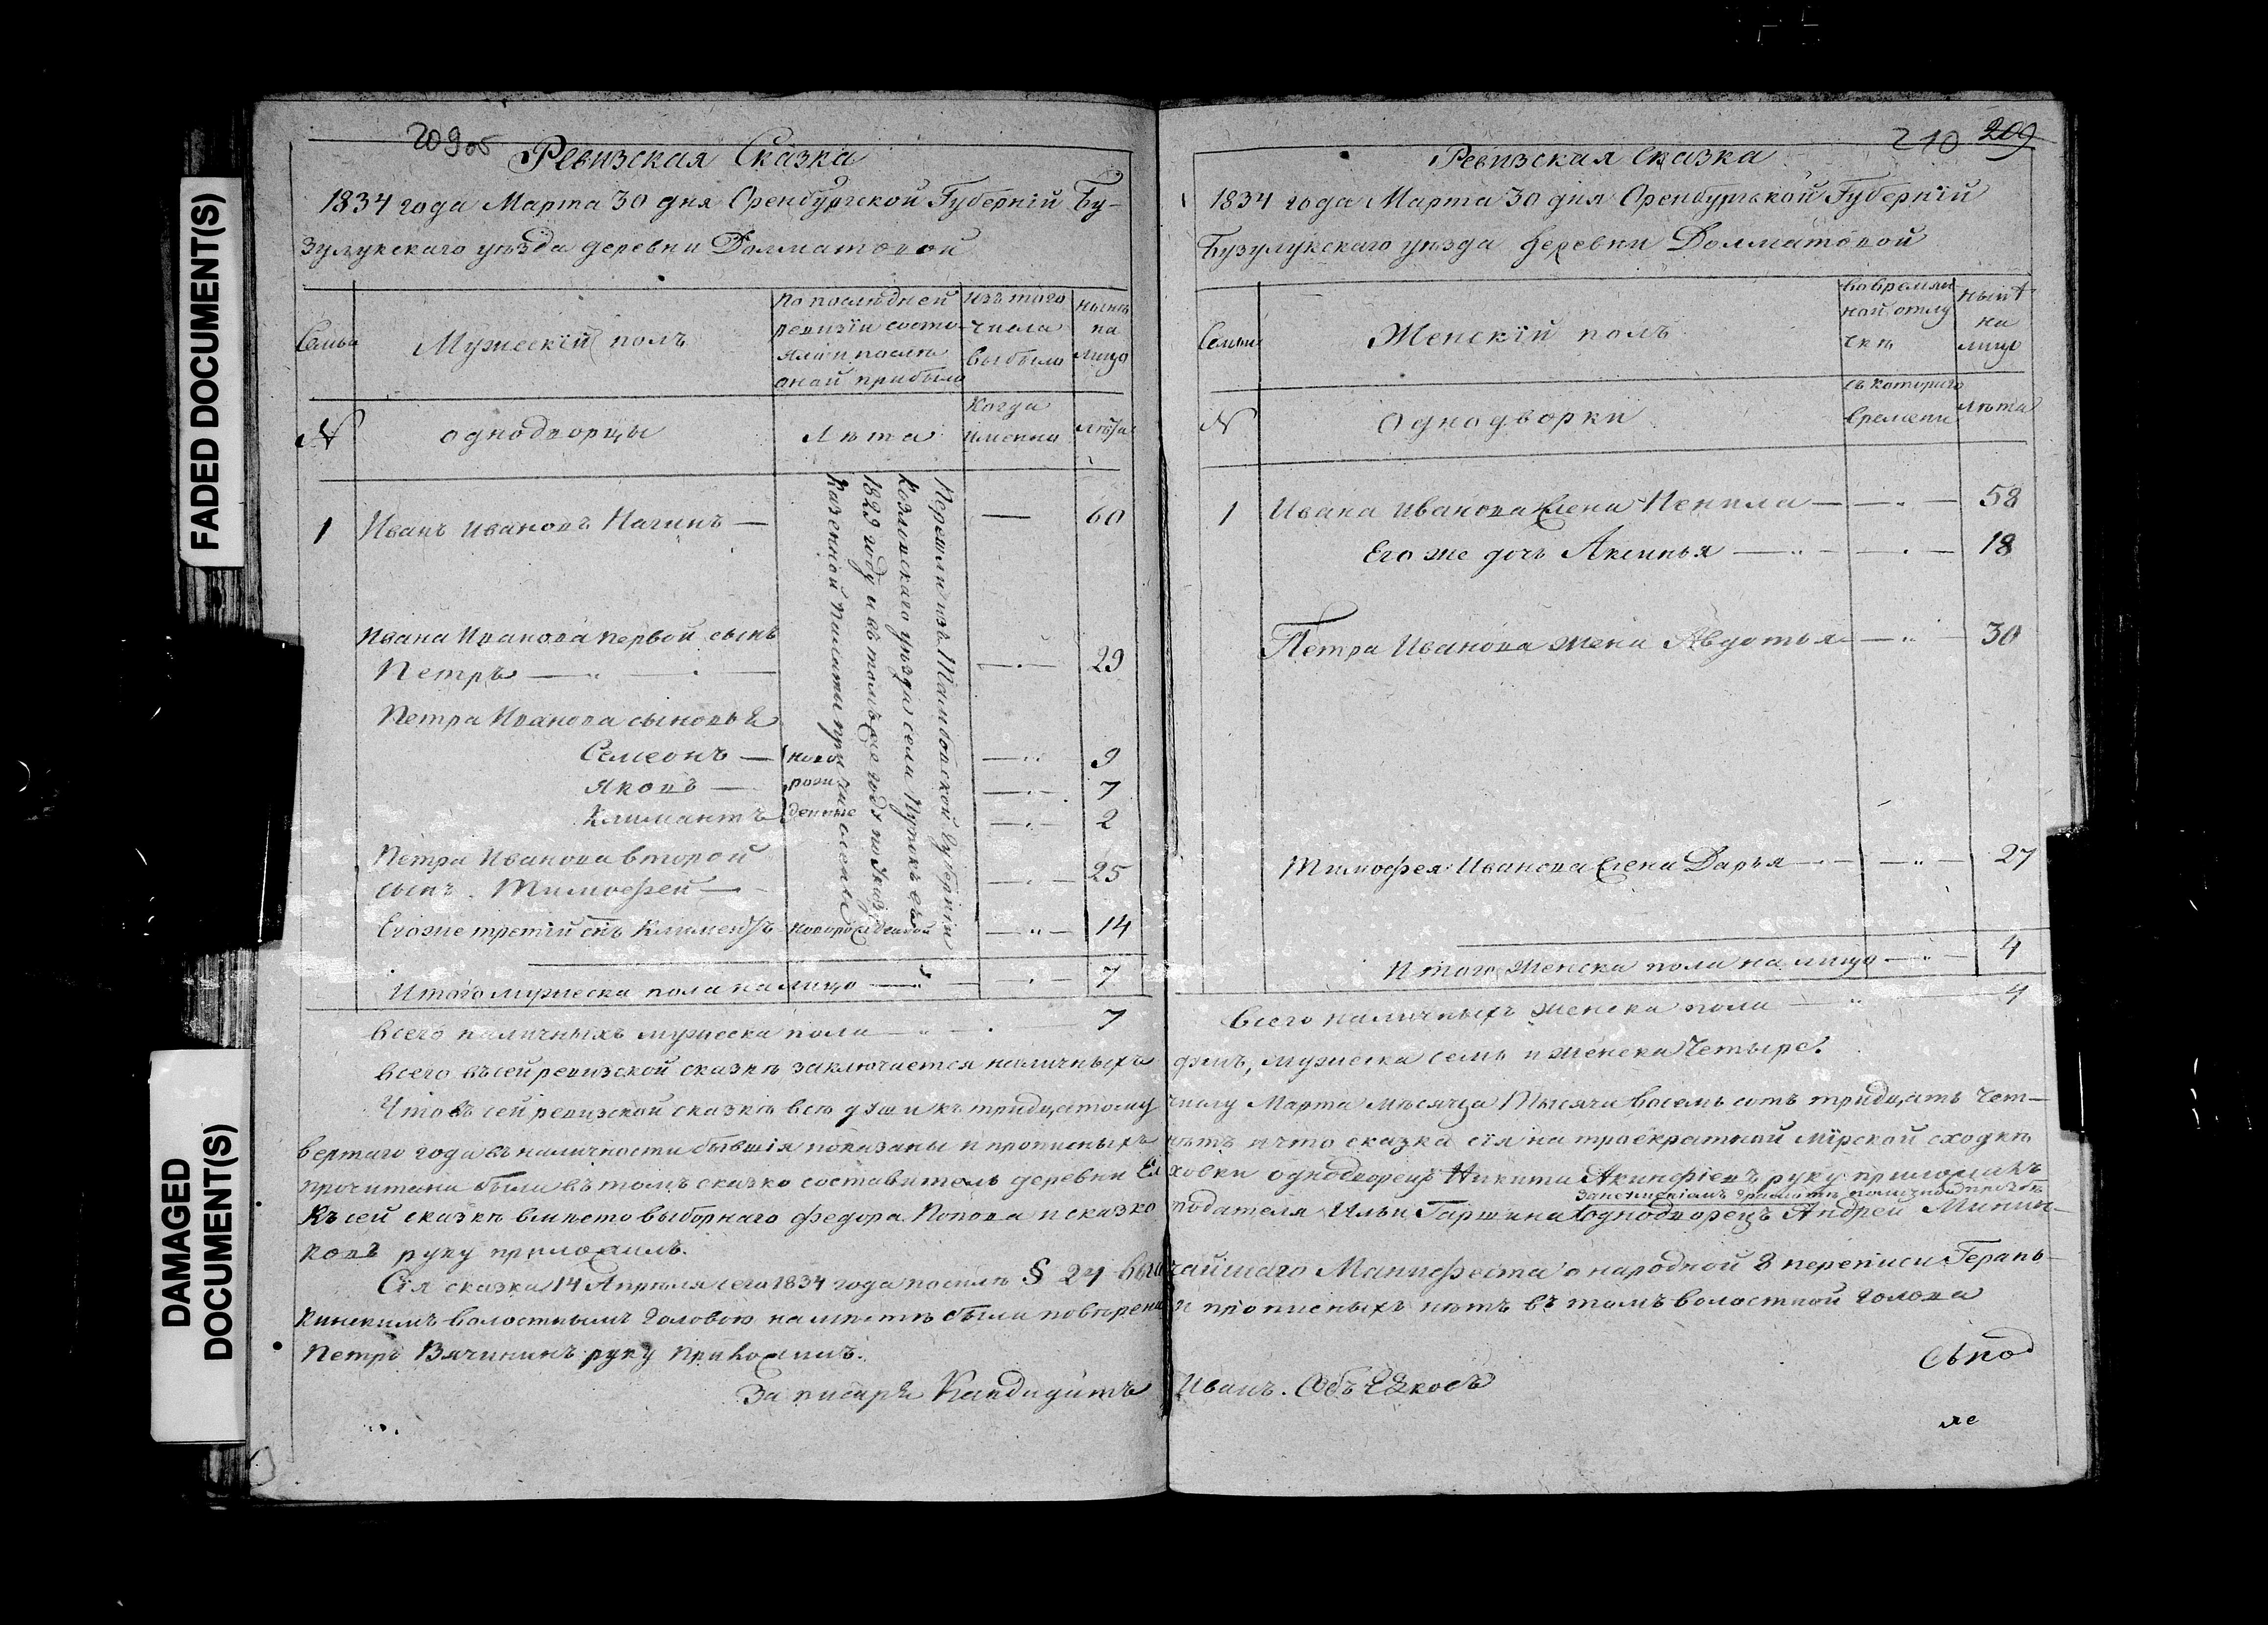 FADED DOCUMENT(S)
DAMAGED
DOCUMENT(S)
209об
Ревизская Сказка
1834 года Марта 30 дня Оренбургской Губерній Бу-
зулукскаго уѣзда деревни Долматовой
Семьи
Мужескій полъ
По послѣдней
ревизіи состо-
яло и послѣ
оной прибыло
Изъ того
числа
выбыло
Нынѣ
на
лицо
№
однодворцы
Лѣта
Когда
имянно
Лѣта
Перешли изъ Тамбовской Губерніи
Козловскаго уѣзда села
1829 году и въ томъ же годѣ по Указу
Казенной Палаты причислены
1 Иванъ Ивановъ Нагинъ — — 60
Ивана Иванова первой сынъ
Петръ — — 29
Петра Иванова сыновья
Семеонъ — ново — 9
Яковъ — рож — 7
Климантъ денные — 2
Петра Иванова второй
сынъ Тимофей — — 25
Его же третій снъ Климентъ новорожденной — 14
Итого мужеска пола на лицо — — 7
Всего наличныхъ мужеска пола — 7
210 209
Ревизская сказка
1834 года Марта 30 дня Оренбургской Губерній
Бузулукскаго уѣзда деревни Долматовой
Семьи
Женскій полъ
Во времян
ной отлу
чкѣ
Нынѣ
на
лицо
№
Однодворки
съ котораго
времени
Лѣта
1 Ивана Иванова жена Ненила — — 58
Его же дочь Аксинья — — 18
Петра Иванова жена Авдотья — — 30
Тимофея Иванова жена Дарья — — 27
Итого Женска пола на лицо — — 4
Всего наличныхъ женска пола — 4
Всего въ сей ревизской сказкѣ заключается наличныхъ душъ, мужеска семь и женска Четыре.
Что въ сей ревизской сказкѣ всѣ души къ тридцатому числу Марта мѣсяца Тысяча восемь сотъ тридцать чет-
вертаго года въ наличности бывшія показаны и прописныхъ нѣтъ и что сказка сія на троекратной мірской сходкѣ
прочитана была въ томъ сказко составитель деревни Елховки однодворецъ Никита Акинфіевъ руку приложилъ
Къ сей сказкѣ вмѣсто выборнаго Федора Попова и сказко подателя Ильи Гаршина однодворецъ Андрей Минни-
ковъ руку приложилъ.
Сія сказка 14 Апрѣля сего 1834 года посилѣ § 24 Высочайшаго Манифеста о народной 8 переписи Герань-
кинскимъ волостнымъ головою на мѣстѣ была повѣрена и прописныхъ нѣтъ въ томъ волостной голова
Петръ Вячининъ руку приложилъ.
За писаря Кандидатъ Иванъ Объѣдковъ